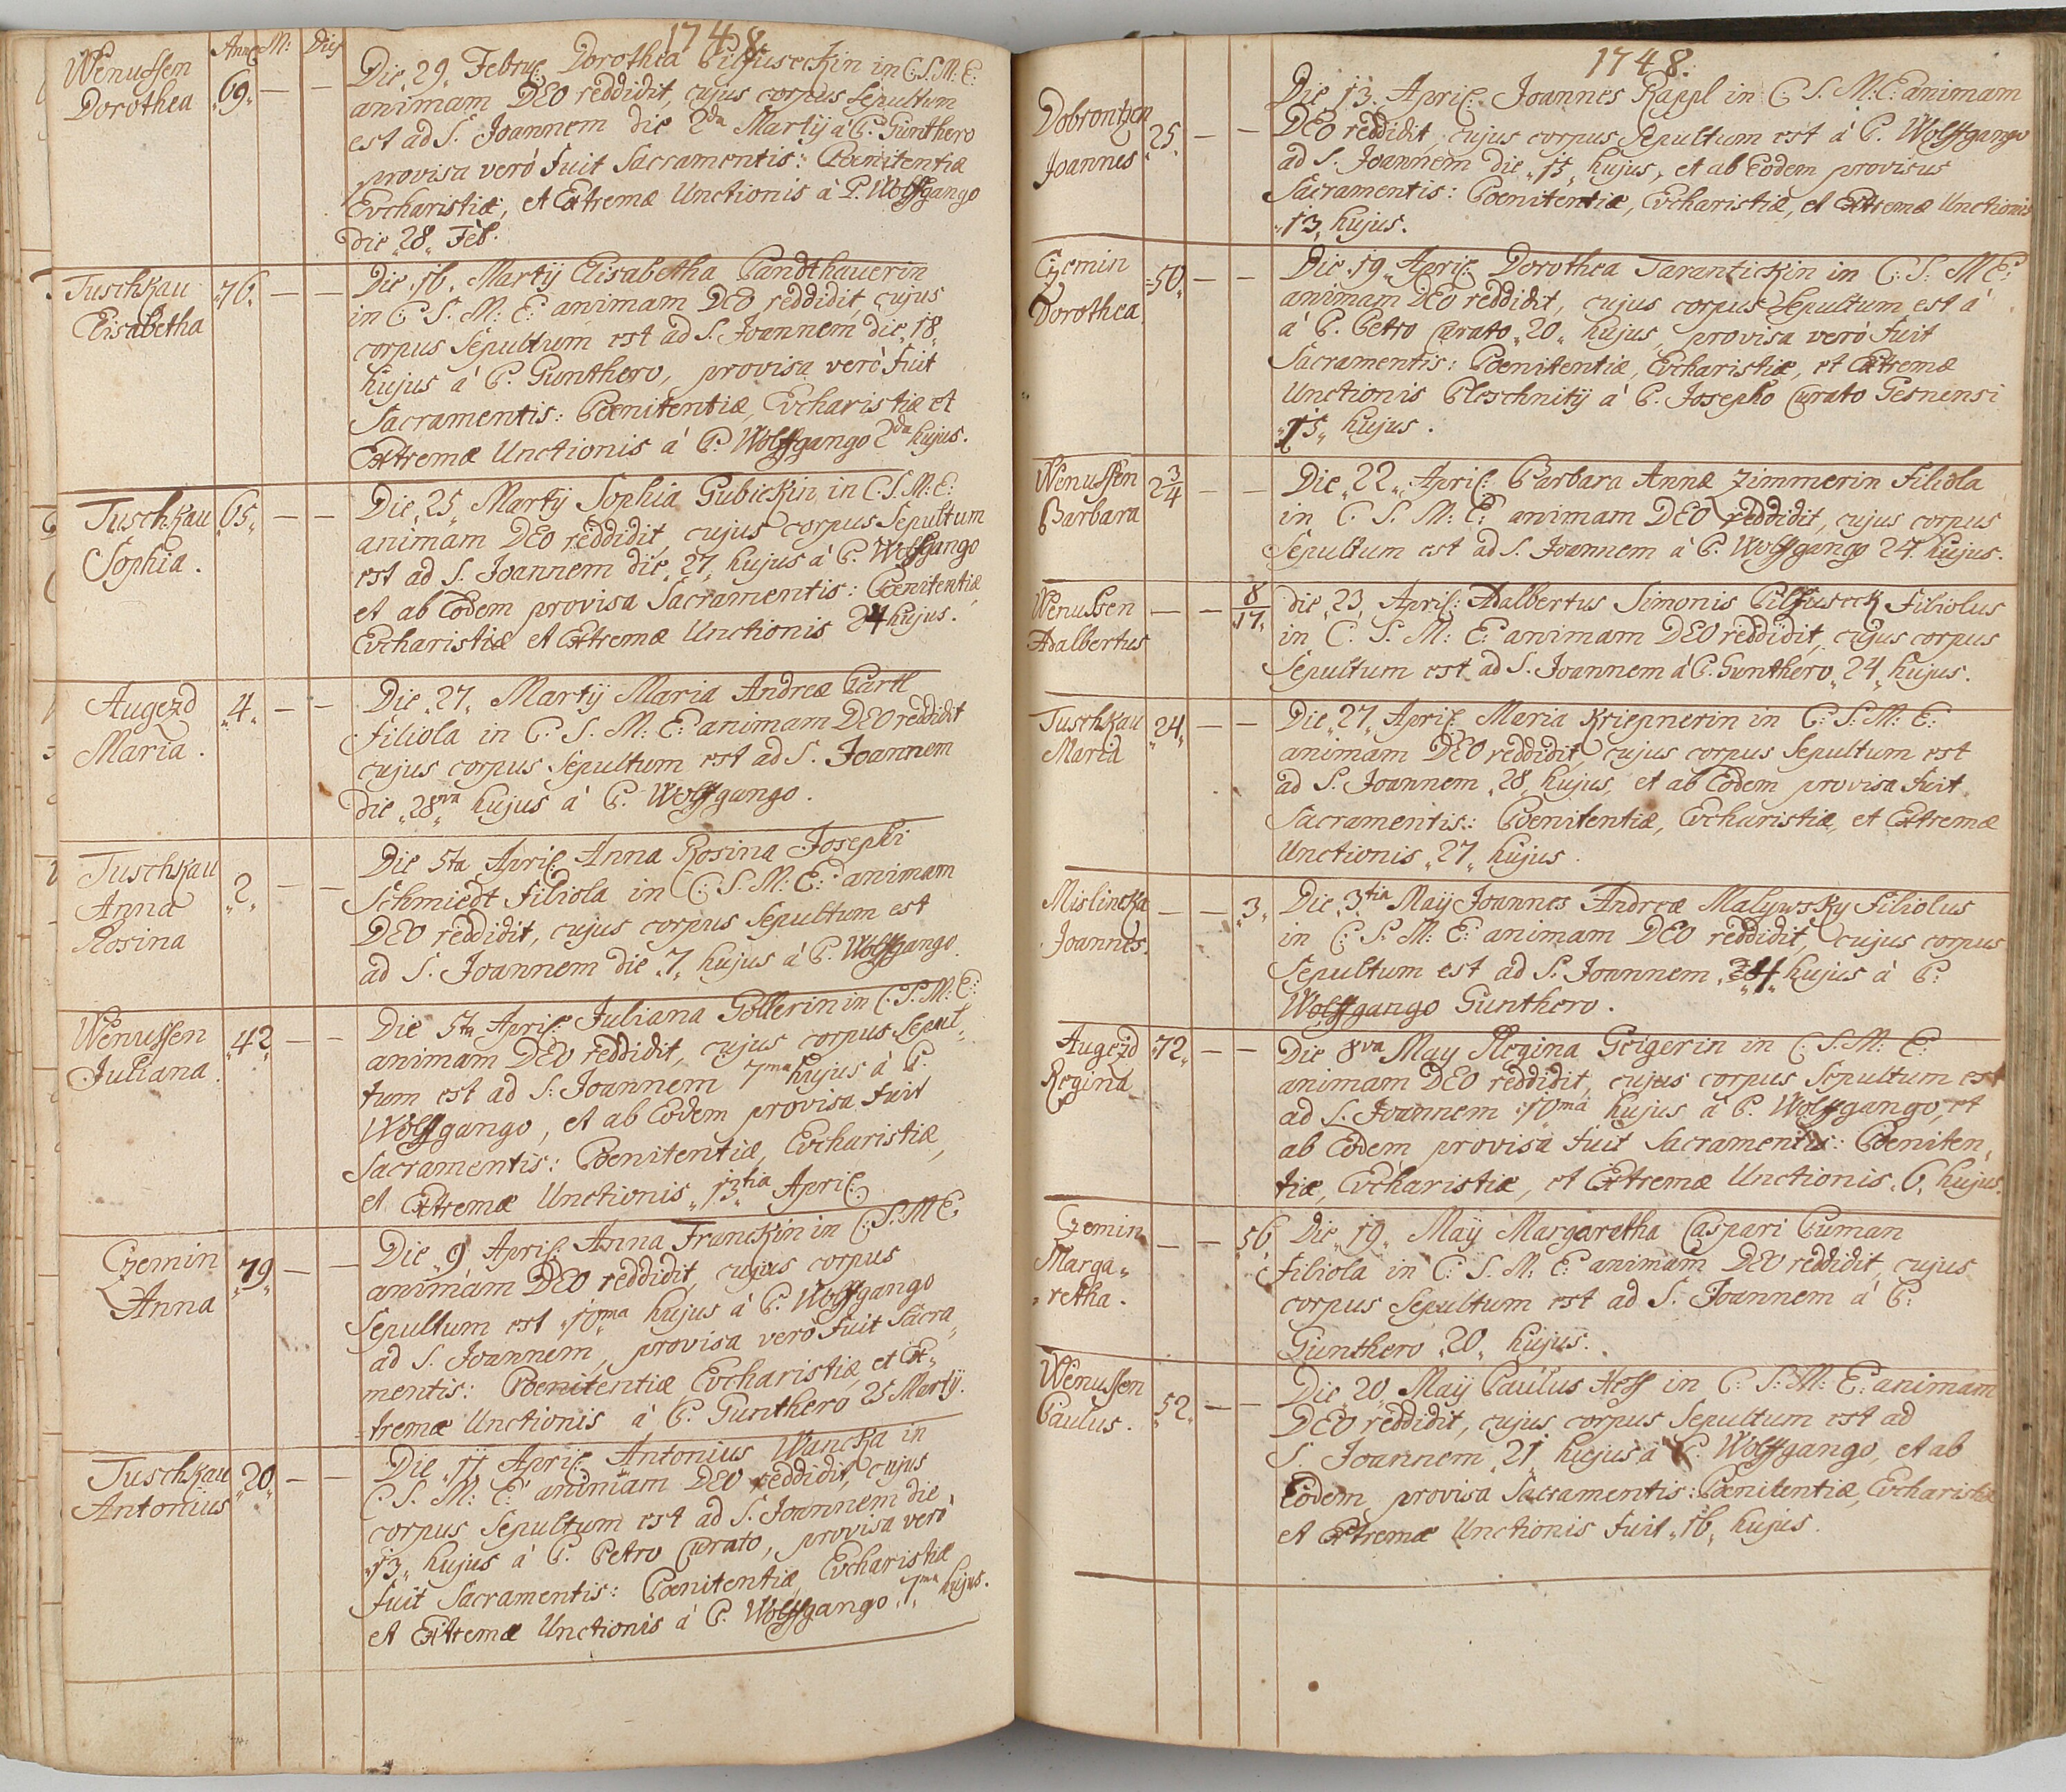 1748.
Ann: M: Dies
Wenussen
Dorothea
69.
Die 29. Febru: Dorothea Pilfuseckin in C: S: M: E:
animam DEO reddidit, cujus corpus Sepultum
est ad S. Joannem die 2da Martij à P. Gunthero
provisa verò fuit Sacramentis: Poenitentiæ
Evcharistiæ, et Extremæ Unctionis à P. Wolffgango
die 28. Feb.
Tuschkau
Elisabetha
76.
Die 16. Martij Elisabetha Pandthauerin
in C: S. M: E: animam DEO reddidit, cujus
corpus Sepultum est ad S. Joannem die 18.
hujus à P. Gunthero, provisa verò fuit
Sacramentis: Poenitentiæ, Evcharistiæ et
Extremæ Unctionis à P. Wolffgango 2da hujus.
Tuschkau
Sophia.
65.
Die 25 Martij Sophia Gubickin in C: S. M: E:
animam DEO reddidit, cujus corpus Sepultum
est ad S. Joannem die 27 hujus à P. Wolffgango
et ab Eodem provisa Sacramentis: Poenitentiæ
Evcharistiæ et Extremæ Unctionis 24 hujus.
Augezd
Maria.
4.
Die 27. Martij Maria Andreæ Partl
filiola in C. S. M: E: animam DEO reddidit
cujus corpus Sepultum est ad S. Joannem
die 28va hujus à P. Wolffgango.
Tuschkau
Anna
Rosina
2.
Die 5ta April: Anna Rosina Josephi
Schmiedt filiola in C: S. M: E: animam
DEO reddidit, cujus corpus Sepultum est
ad S. Joannem die 7. hujus à P. Wolffgango.
Wenussen
Juliana.
42
Die 5ta April: Juliana Göllerin in C: S. M: E:
animam DEO reddidit, cujus corpus Sepul,
tum est ad S: Joannem 7ma hujus à P.
Wolffgango, et ab Eodem provisa fuit
Sacramentis: Poenitentiæ, Evcharistiæ,
et Extremæ Unctionis 13tia April:
Czemin
Anna
79.
Die 9. April: Anna Franckin in C: S. M E:
animam DEO reddidit, cujus corpus
Sepultum est 10ma hujus à P. Wolffgango
ad S. Joannem, provisa verò fuit Sacra,
mentis: Poenitentiæ, Evcharistiæ, et Ex,
tremæ Unctionis à P. Gunthero 25 Martij.
Tuschkau
Antonius
20.
Die 11 April: Antonius Wancka in
C. S. M: E: animam DEO reddidit, cujus
corpus Sepultum est ad S. Joannem die
13. hujus à P. Petro Curato, provisa verò
fuit Sacramentis: Poenitentiæ, Evcharistiæ
et Extremæ Unctionis à P. Wolffgango 7ma hujus.
1748.
Dobrontzen
Joannes
25.
Die 13. April: Joannes Rappl in C: S. M: E: animam
DEO reddidit, cujus corpus Sepultum est à P. Wolffgango
ad S. Joannem die 15. hujus, et ab Eodem provisus
Sacramentis: Poenitentiæ, Evcharistiæ, et Extremæ Unctionis
13. hujus.
Czemin
Dorothea.
50.
Die 19. April: Dorothea Tarantickin in C: S: M E:
animam DEO reddidit, cujus corpus Sepultum est à
à P. Petro Curato 20. hujus, provisa verò fuit
Sacramentis: Poenitentiæ, Evcharistiæ, et Extremæ
Unctionis Pleschnitij à P. Josepho Curato Gesnensi
15. hujus.
Wenussen
Barbara
2 3/4
Die 22. April: Barbara Annæ Zimmerin filiola
in C. S. M: E: animam DEO reddidit, cujus corpus
Sepultum est ad S. Joannem à P. Wolffgango 24. hujus.
Wenussen
Adalbertus
8/17.
die 23. April: Adalbertus Simonis Pilfuseck filiolus
in C. S. M: E: animam DEO reddidit, cujus corpus
Sepultum est ad S. Joannem à P. Gunthero 24. hujus.
Tuschkau
Maria
24.
Die 27. April: Maria Kriepnerin in C: S: M: E:
animam DEO reddidit, cujus corpus Sepultum est
ad S. Joannem 28. hujus, et ab Eodem provisa fuit
Sacramentis: Poenitentiæ, Evcharistiæ, et Extremæ
Unctionis 27. hujus.
Mislincka
Joannes.
3.
Die 3tia Maij Joannes Andreæ Malywsky filiolus
in C: S. M: E: animam DEO reddidit, cujus corpus
Sepultum est ad S. Joannem 4. hujus à P.
Wolffgango Gunthero.
Augezd
Regina
72.
Die 8va May Regina Geigerin in C. S. M: E:
animam DEO reddidit, cujus corpus Sepultum est
ad S. Joannem 10ma hujus à P. Wolffgango, et
ab Eodem provisa fuit Sacramentis: Poeniten,
tiæ, Evcharistiæ, et Extremæ Unctionis 6. hujus.
Czemin
Marga,,
retha.
56
Die 19. Maij Margaretha Caspari Puman
filiola in C: S. M: E: animam DEO reddidit, cujus
corpus Sepultum est ad S. Joannem à P:
Gunthero 20. hujus.
Wenussen
Paulus.
52.
Die 20. Maij Paulus Hess in C: S: M: E: animam
DEO reddidit, cujus corpus Sepultum est ad
S. Joannem 21 hujus à P. Wolffgango, et ab
Eodem provisa Sacramentis: Poenitentiæ, Evcharistiæ
et Extremæ Unctionis fuit 16. hujus.